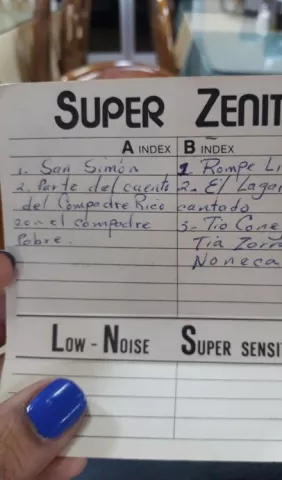 SUPER ZENIT
A INDEX B INDEX
1. San Simón
2. Parte del cuento
del Compadre Rico
con el compadre
Pobre.
1 Rompe Li
2- El Lagar
cantado
3- Tio Cone
Tia Zorra
Noneca
LOW-NOISE SUPER SENSIT